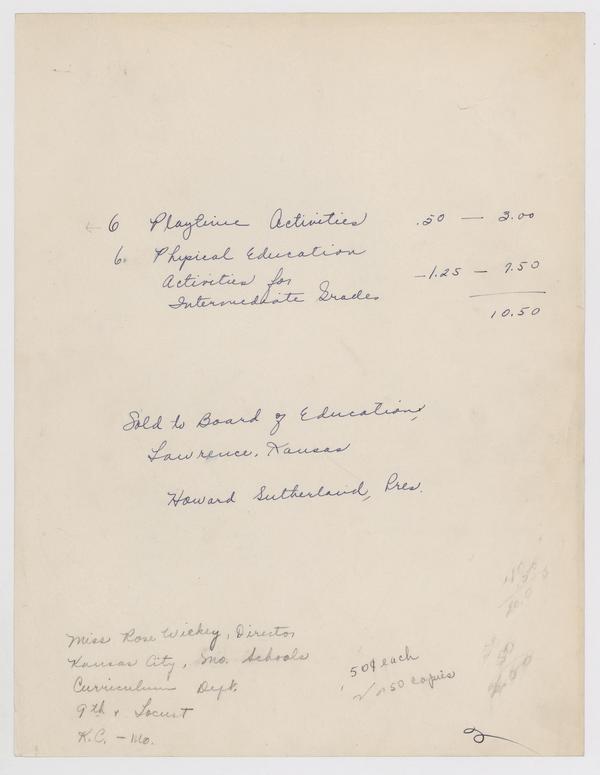 6 Playtime Activities .50 — 3.00
6. Physical Education
Activities for — 1.25 — 7.50
Intermediate Grades
10.50
Sold to Board of Education,
Lawrence, Kansas
Howard Sutherland, Pres.
Miss Rose Wickey, Director
Kansas City, Mo. Schools
Curriculum Dept.
9th & Locust
K.C. — Mo.
50¢ each
50 copies